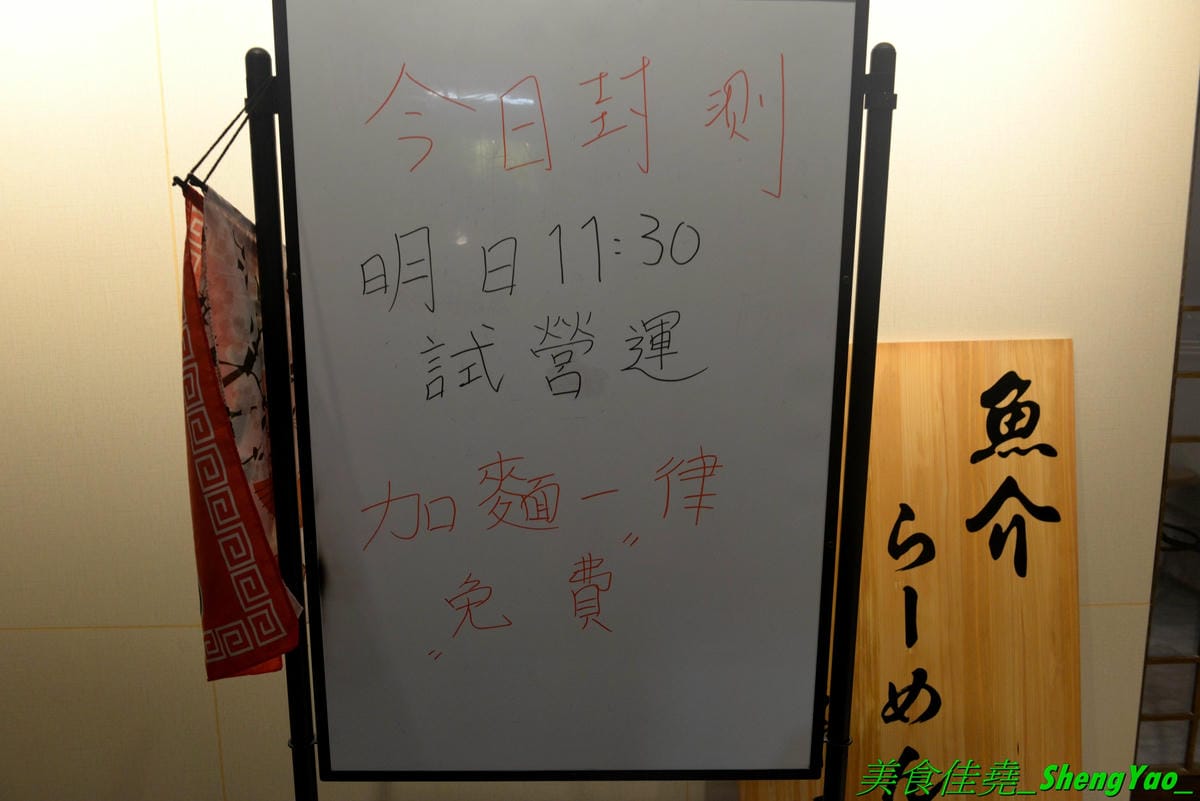 今日封测
明日11:30
試營運
加麵一律
"免費"
魚介
らーめん
美食佳堯_ShengYao_